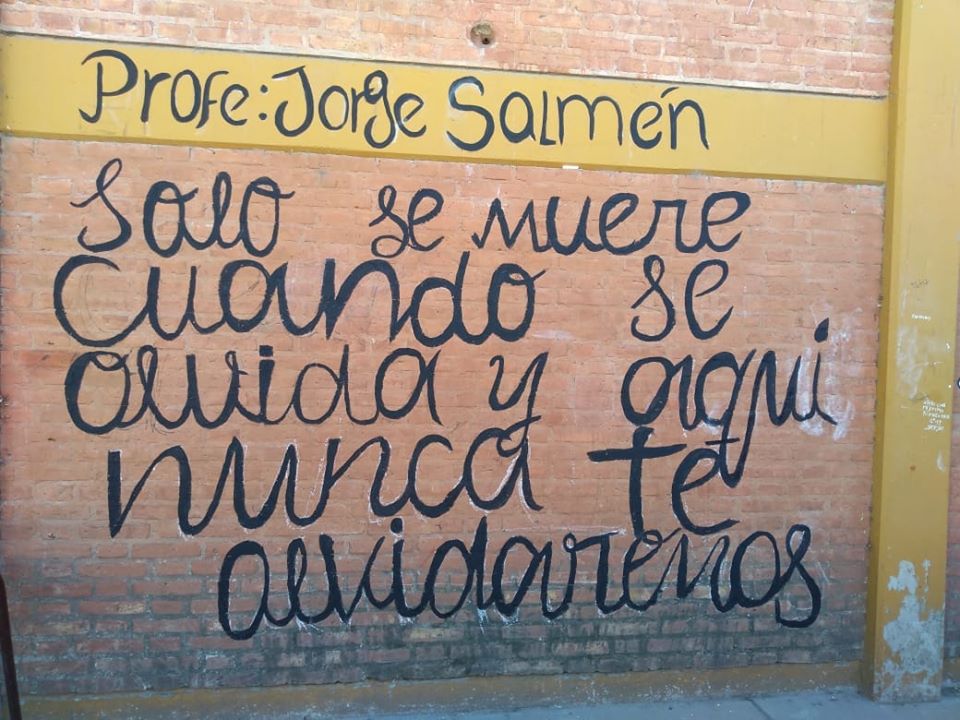 Profe: Jorge Salmén
Solo se muere
cuando se
olvida y aqui
nunca te
olvidaremos